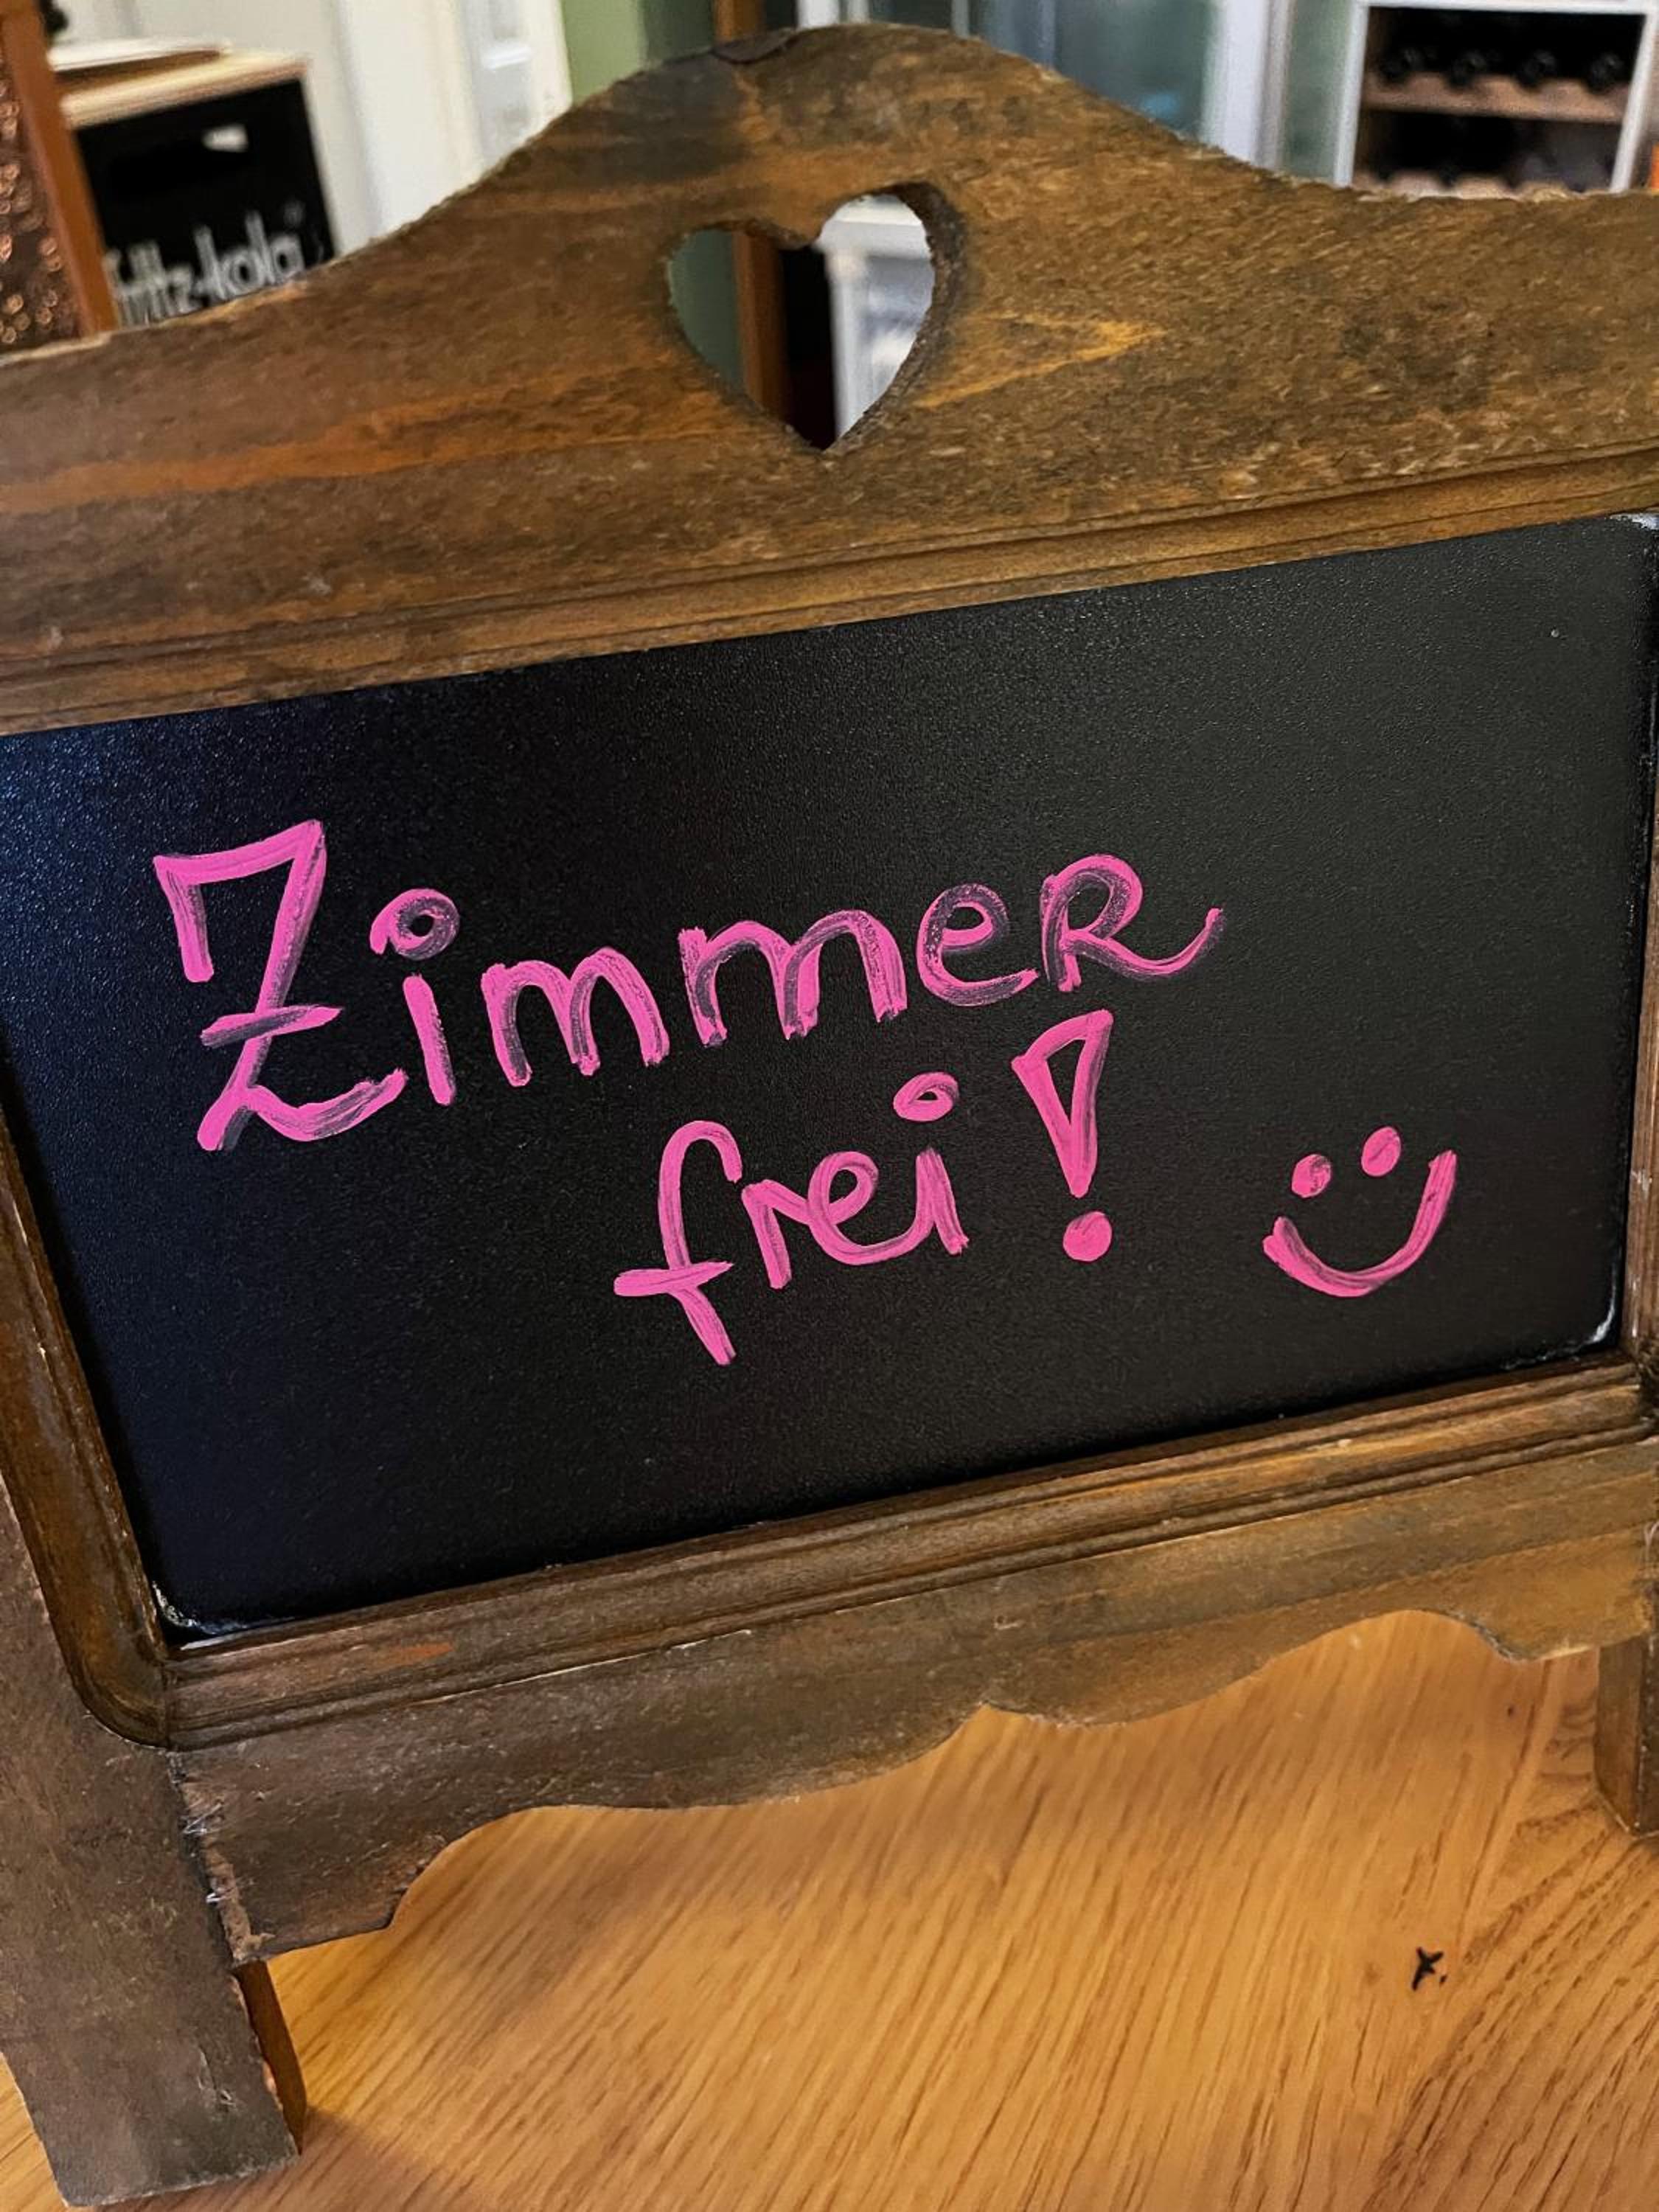 fritz-kola
Zimmer
frei! :)